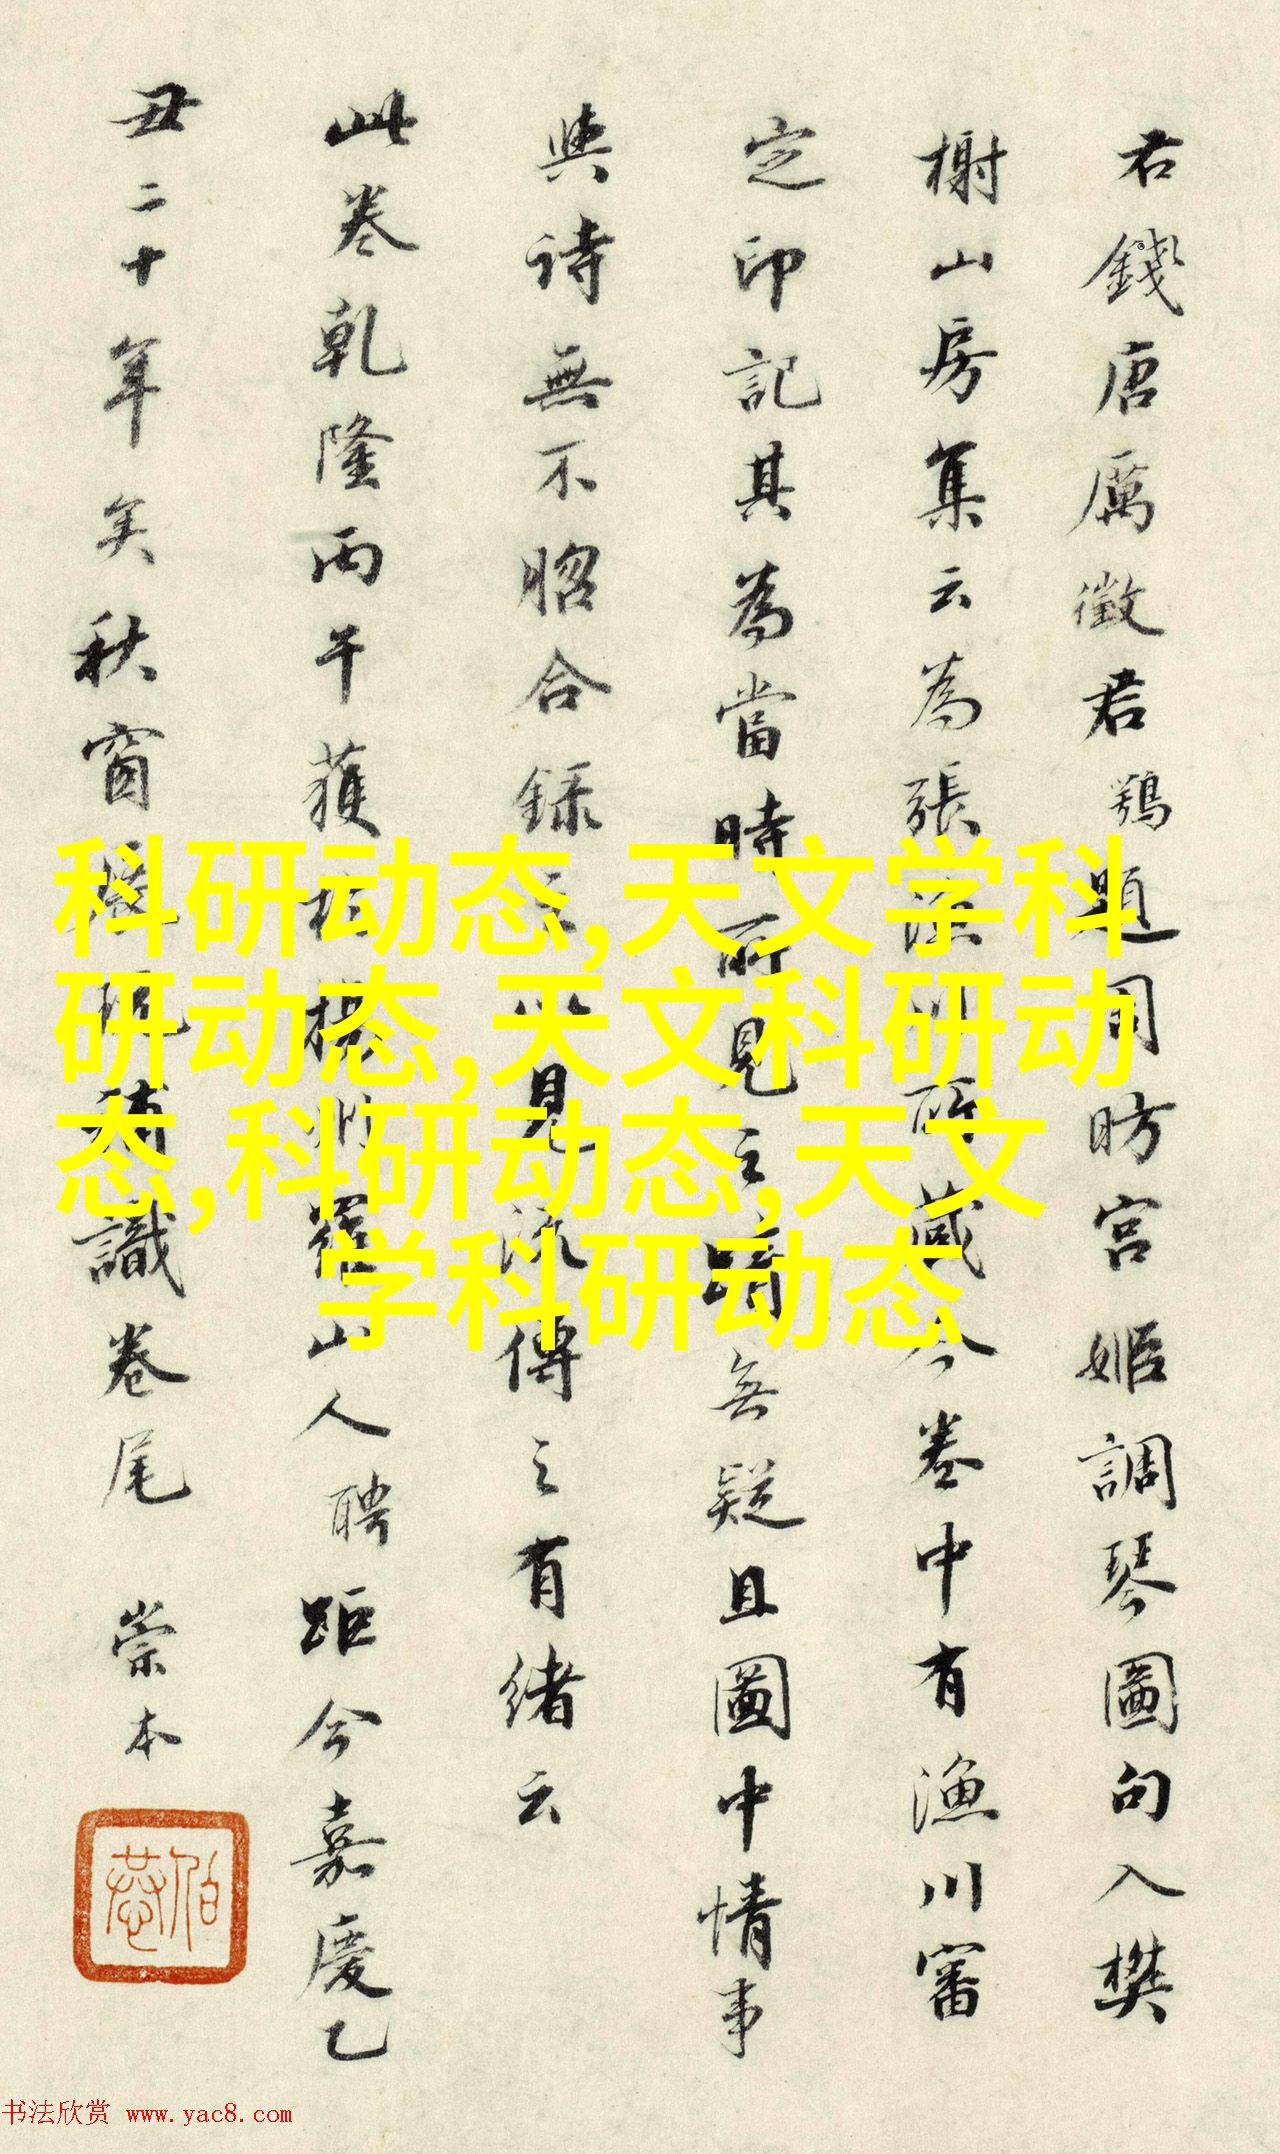 君錢唐厲徵君鶚題周昉宮姬調琴圖句入樊
榭山房集云為張漁川所藏今卷中有漁川審
定印記其為當時所見之蹟無疑且圖中情事
與詩無不脗合錄之以見流傳之有緒云
此卷乾隆丙午獲於揚州羅山人聘距今嘉慶乙
丑二十年矣秋窗展玩補識卷尾 崇本
伯恭
科研动态,天文学科
研动态,天文科研动
态,科研动态,天文
学科研动态
书法欣赏 www.yac8.com